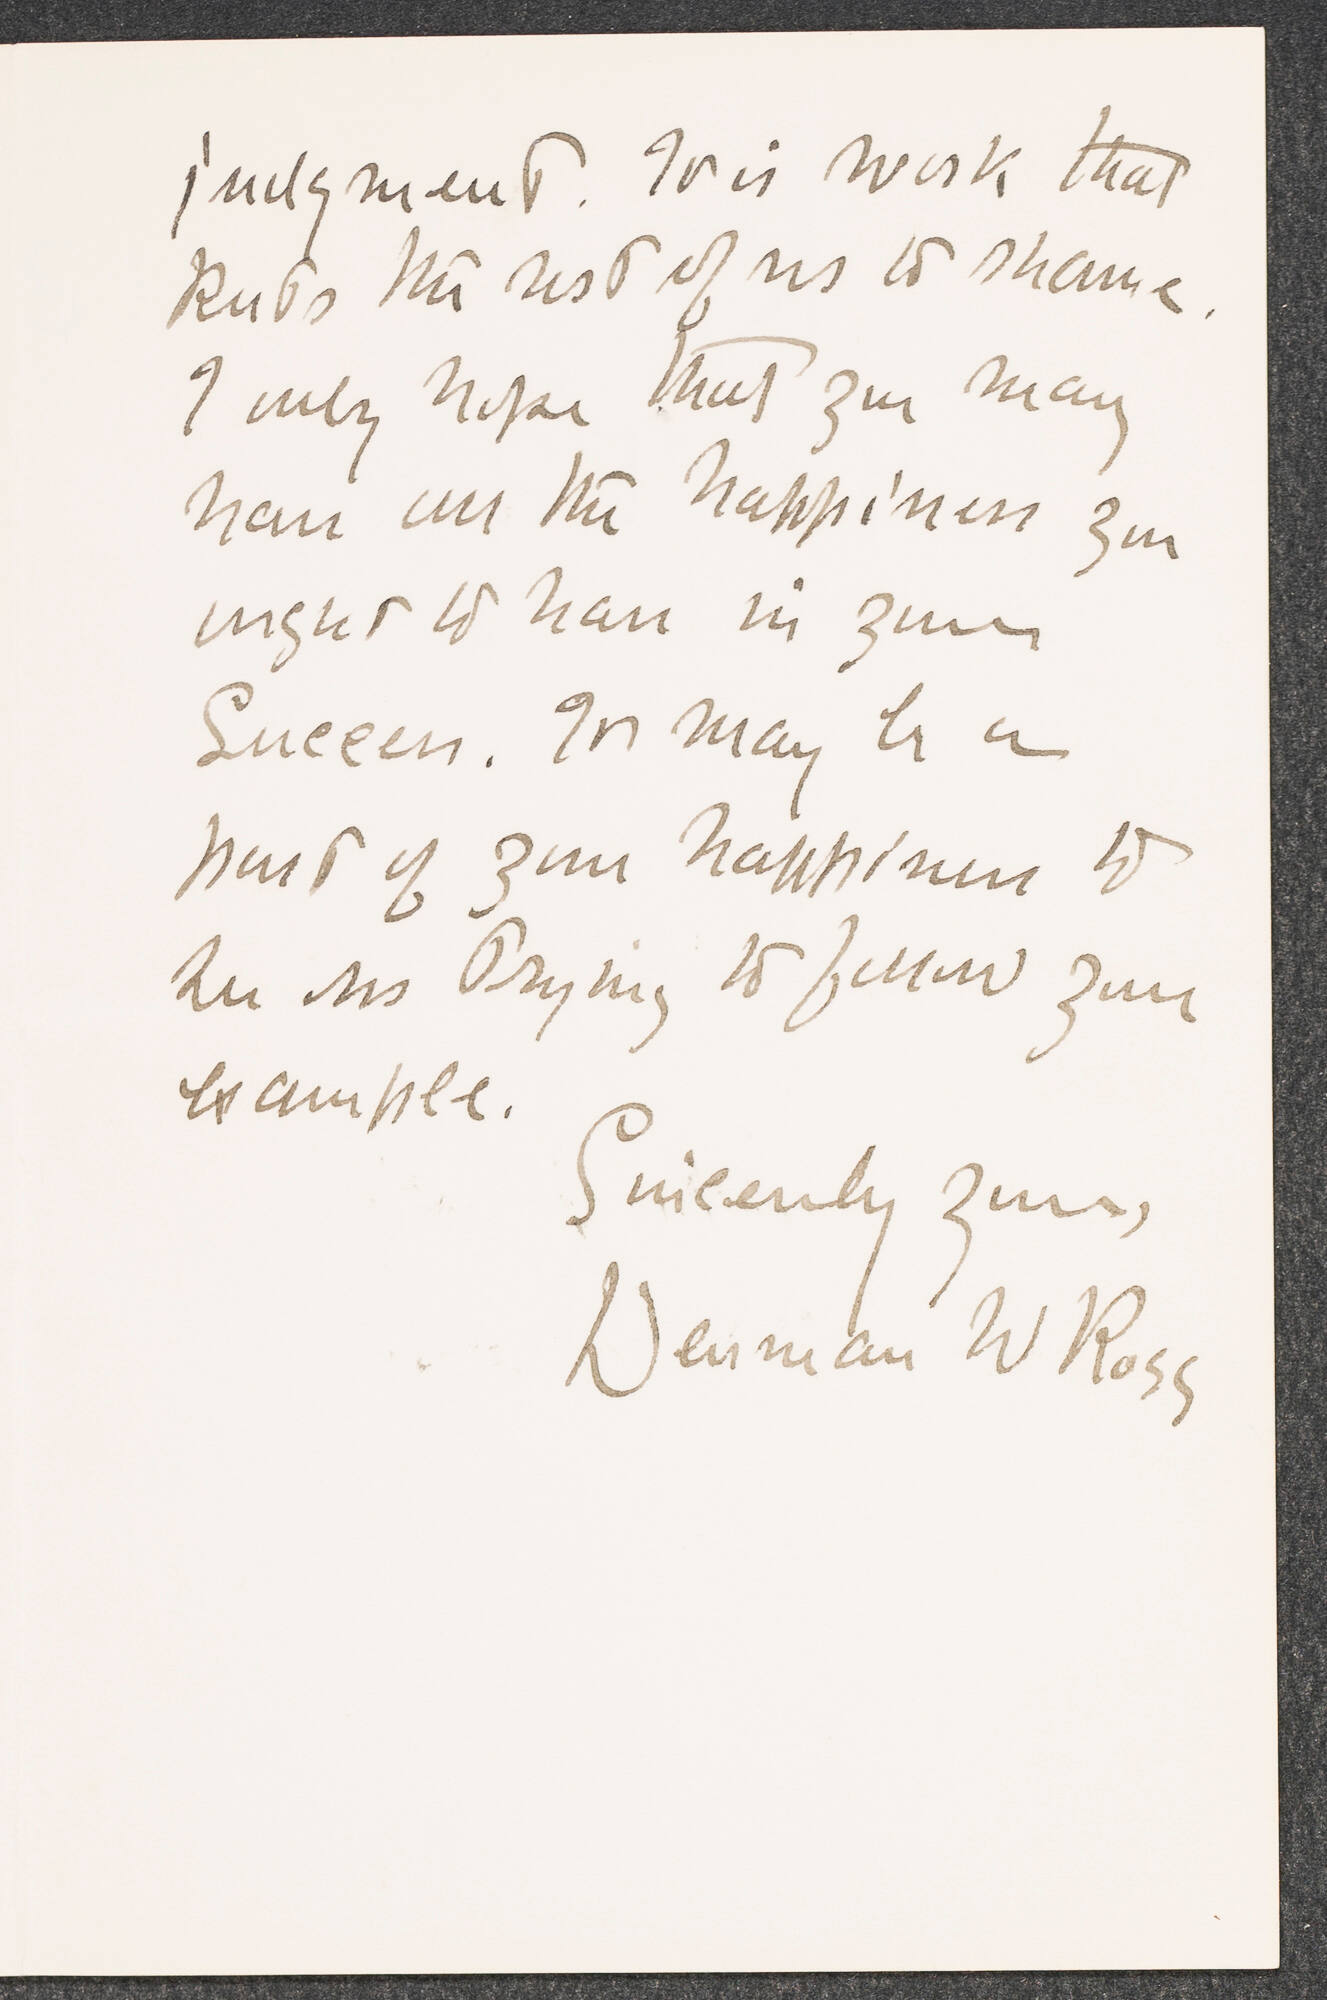 judgment. It is work that
puts the rest of us to shame.
I only hope that you may
have all the happiness you
ought to have in your
Success. It may be a
part of your happiness to
see us trying to follow your
example.
Sincerely yours,
Denman W Ross